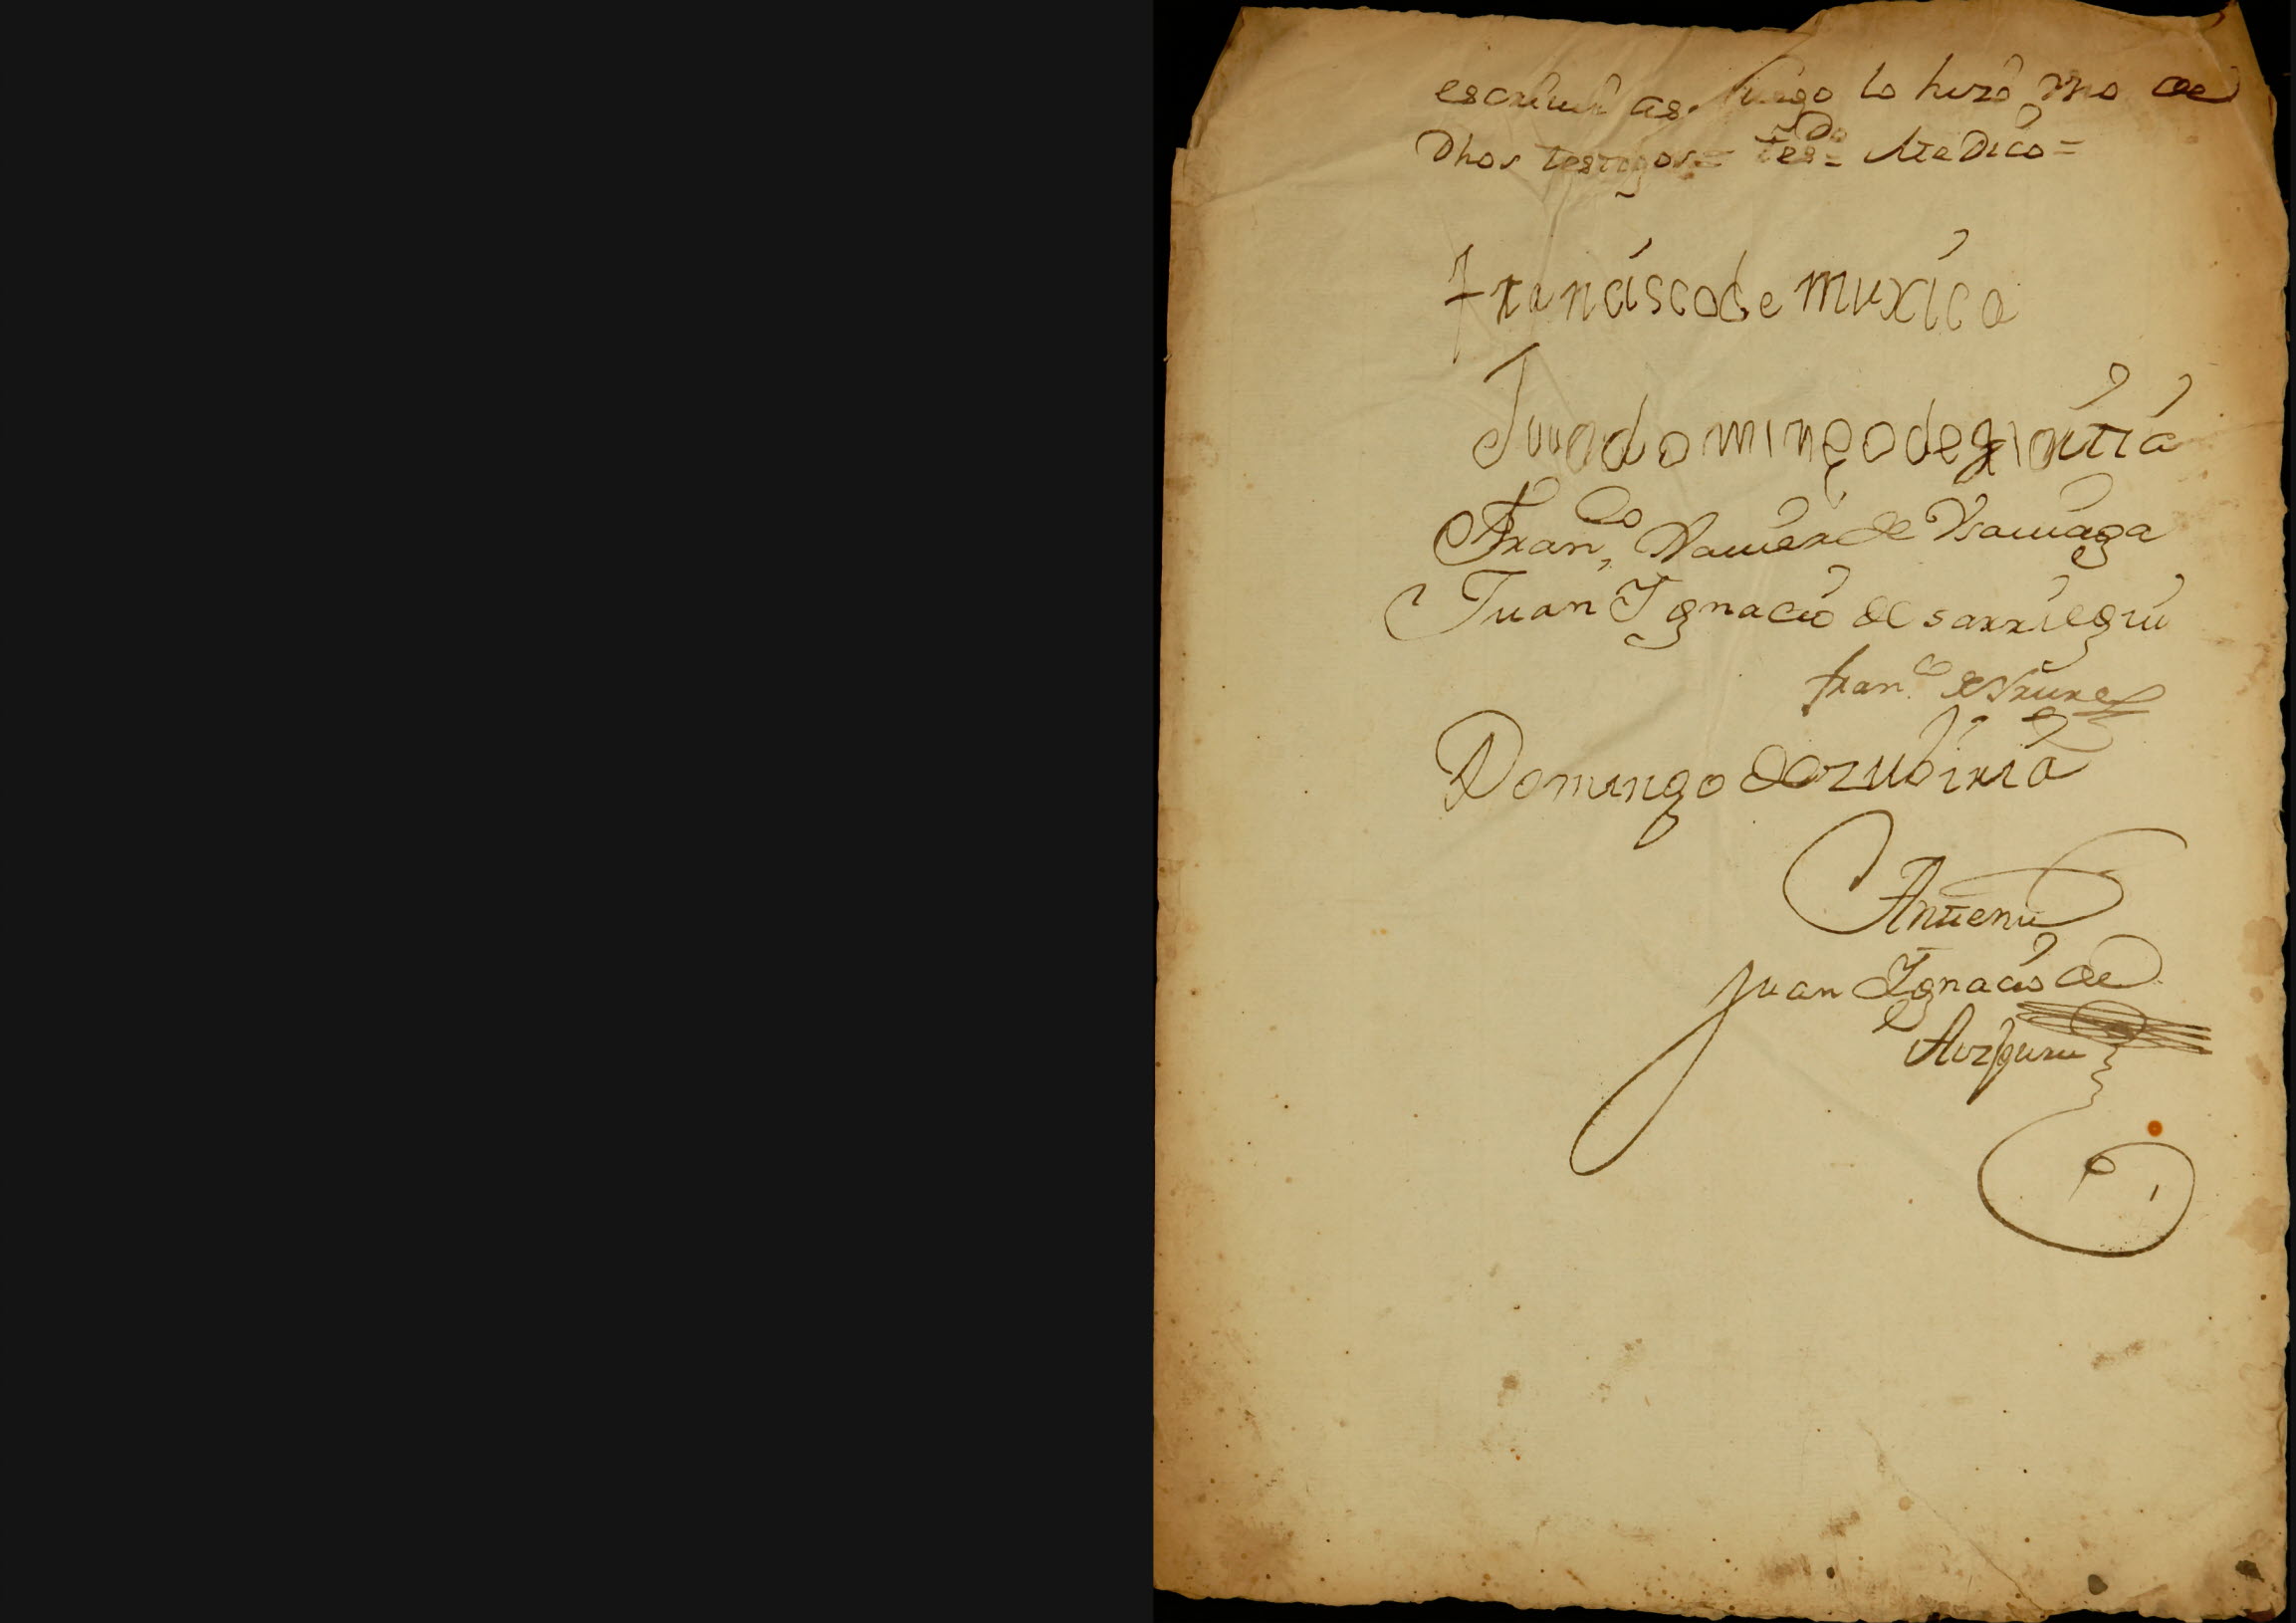 escriuir as. Ruego lo hizo Vno de
Dhos testigos = tesdo = Medico =
Francisco de muxica
Juo domingo de giontia
Franco Xauier de Vsauiaga
Juan Ignacio de sarriegui
franco de
Domingo de zubiria
Antemi
Juan Ignacio de
Aizpuru